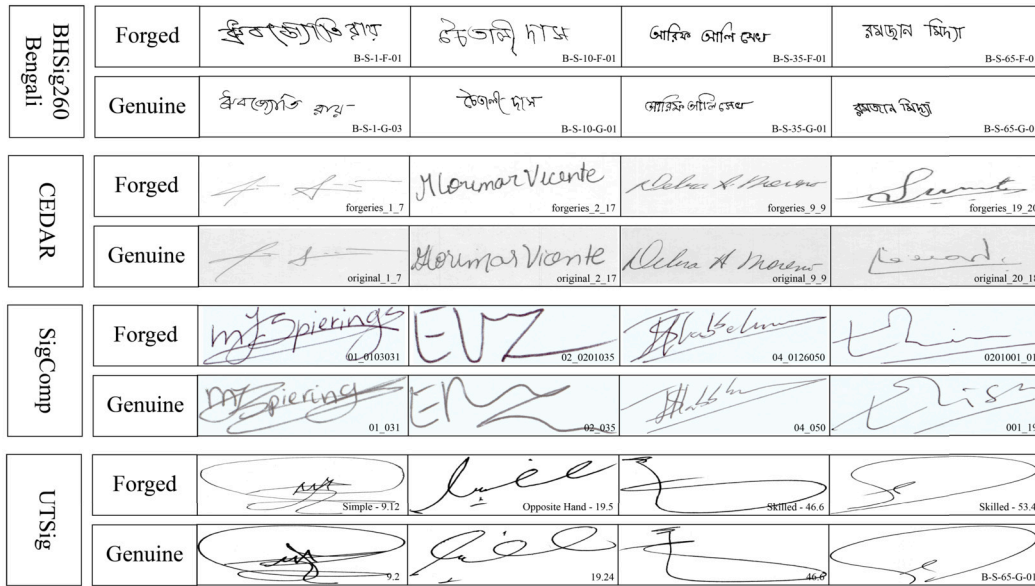 BHSig260 Bengali
Forged
ধ্রুবজ্যোতি রায়
B-S-1-F-01
চৈতালী দাস
B-S-10-F-01
আরিফ আলি সেখ
B-S-35-F-01
রমজান মিদ্যা
B-S-65-F-0
Genuine
ধ্রুবজ্যোতি রায়
B-S-1-G-03
চৈতালী দাস
B-S-10-G-01
আরিফ আলি সেখ
B-S-35-G-01
রমজান মিদ্যা
B-S-65-G-0
CEDAR
Forged
forgeries_1_7
Morimar Vicente
forgeries_2_17
Debra A. Moreno
forgeries_9_9
forgeries_19_20
Genuine
original_1_7
Morimar Vicente
original_2_17
Debra A Moreno
original_9_9
original_20_18
SigComp
Forged
MJ Spierings
01_0103031
02_0201035
04_0126050
0201001_01
Genuine
MJ Spierings
01_031
02_035
04_050
001_19
UTSig
Forged
Simple - 9.12
Opposite Hand - 19.5
Skilled - 46.6
Skilled - 53.4
Genuine
9.2
19.24
46.6
B-S-65-G-0